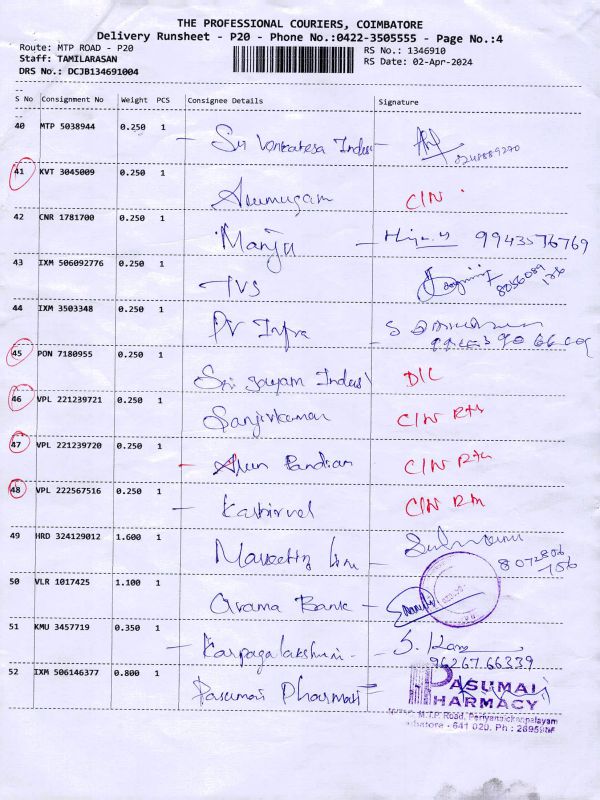 THE PROFESSIONAL COURIERS, COIMBATORE
Delivery Runsheet - P20 - Phone No.:0422-3505555 - Page No.:4
Route: MTP ROAD - P20
RS No.: 1346910
Staff: TAMILARASAN
RS Date: 02-Apr-2024
DRS No.: DCJB134691004
S No Consignment No Weight PCS Consignee Details Signature
40 MTP 5038944 0.250 1 Sri Venkatesa Indus
41 KVT 3045009 0.250 1 Arumugam C/N
42 CNR 1781700 0.250 1 Manju 9943576769
43 IXM 506092776 0.250 1 TVS
44 IXM 3503348 0.250 1 PV Infra
45 PON 7180955 0.250 1 Sri Jayam Indus D/C
46 VPL 221239721 0.250 1 Sanjivkumar C/N
47 VPL 221239720 0.250 1 Arun Pandian C/N
48 VPL 222567516 0.250 1 Kathirvel C/N
49 HRD 324129012 1.600 1
8072806
756
50 VLR 1017425 1.100 1 Bank
51 KMU 3457719 0.350 1 Karpagalakshmi
96267.66339
52 IXM 506146377 0.800 1 Pasumai Pharmacy
PASUMAI
PHARMACY
M.T.P. Road, Periyanaickenpalayam
641 020. Ph :